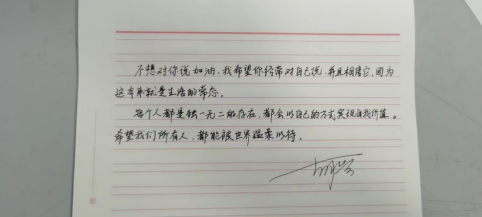 不想对你说加油，我希望你经常对自己说，并且相信它，因为
这本来就是生活的常态。
每个人都是独一无二的存在，都会以自己的方式实现自我价值。
希望我们所有人，都能被世界温柔以待。